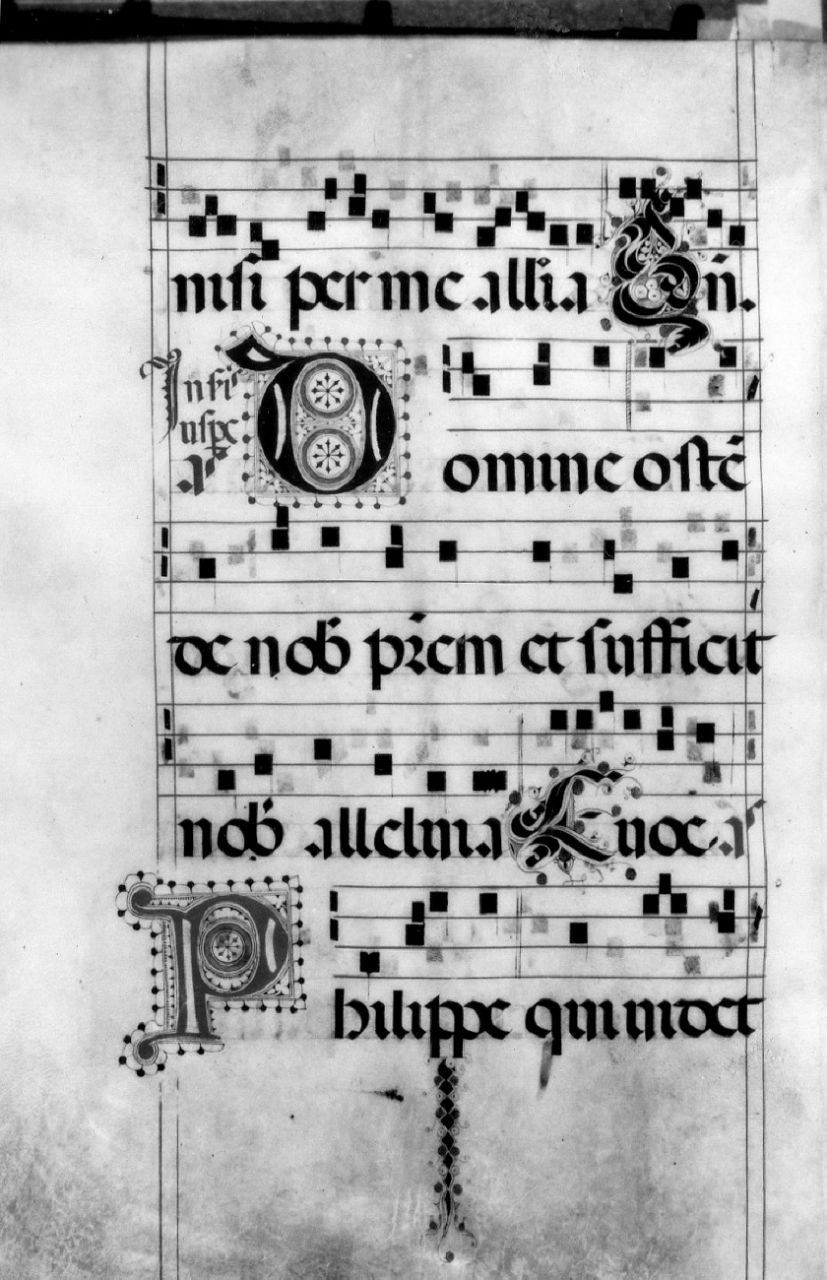 nisi per me allīa Sn̄.
In fi
Domine ostē
de nob̄ pr̄em et sufficit
nob̄ alleluia Euoe a
Philippe qui uidet